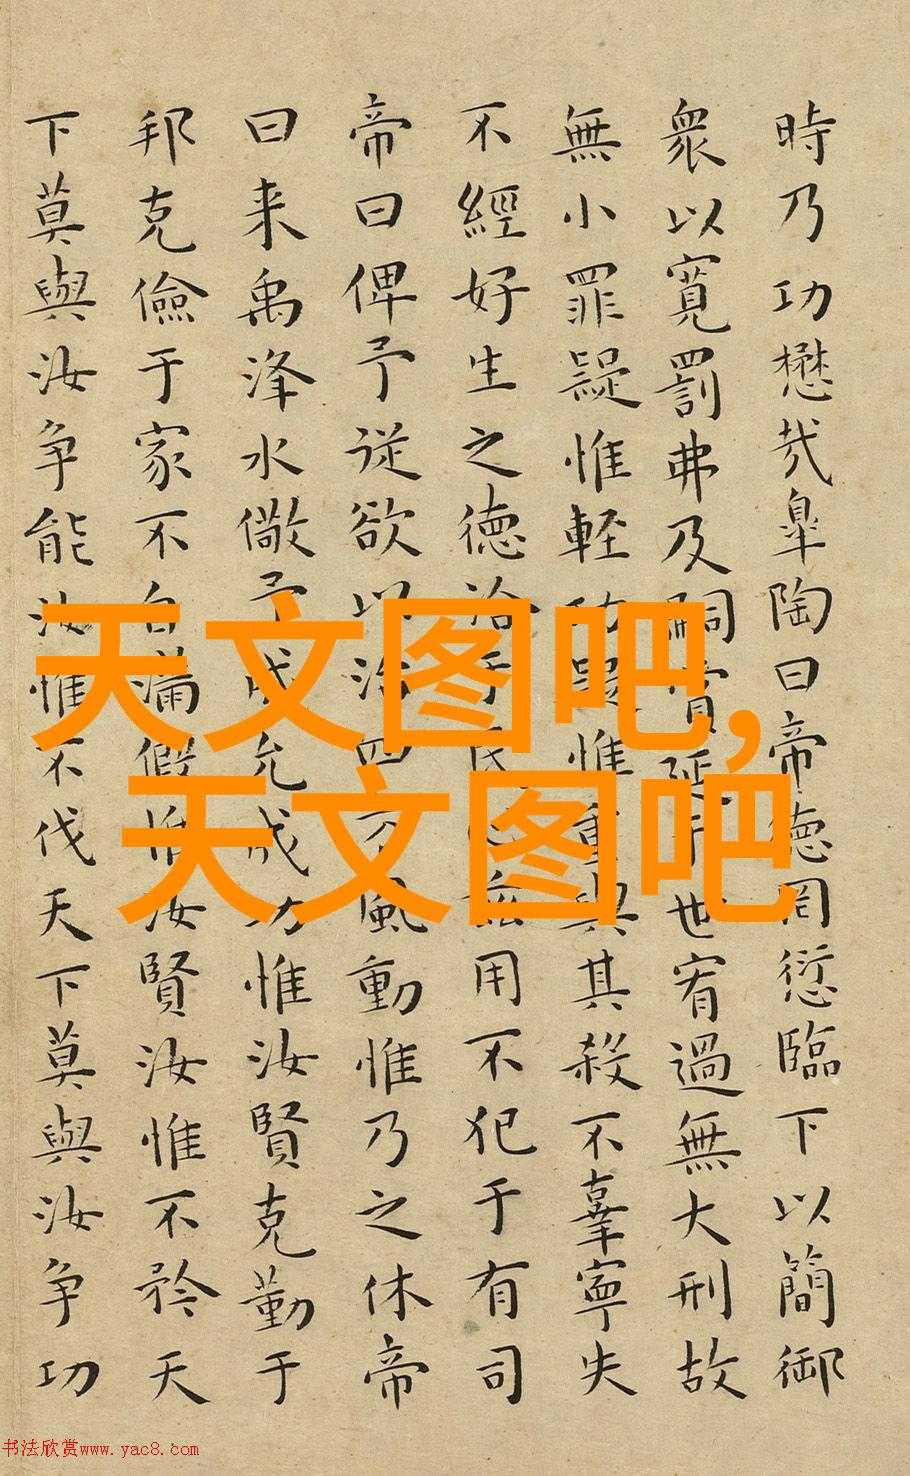 時乃功懋哉皐陶曰帝德罔愆臨下以簡御
衆以寬罰弗及嗣賞延于世宥過無大刑故
無小罪疑惟輕功疑惟重與其殺不辜寧失
不經好生之德洽于民心兹用不犯于有司
帝曰俾予従欲以治四方風動惟乃之休帝
曰来禹洚水儆予成允成功惟汝賢克勤于
邦克儉于家不自滿假惟汝賢汝惟不矜天
下莫與汝争能汝惟不伐天下莫與汝争功
天文图吧,
天文图吧
书法欣赏www.yac8.com